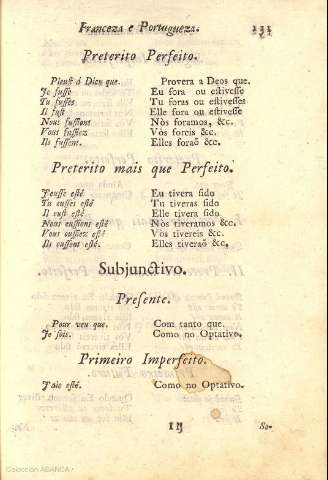 Franceza e Portugueza. 131
Preterito Perfeito.
Pleust à Dieu que. Provera a Deos que.
Je fusse Eu fora ou estivesse
Tu fusses Tu foras ou estivesses
Il fust Elle fora ou estivesse
Nous fussions Nòs foramos, &c.
Vous fussiez Vòs foreis &c.
Ils fussent. Elles foraõ &c.
Preterito mais que Perfeito.
J'eusse esté Eu tivera sido
Tu eusses esté Tu tiveras sido
Il eust esté Elle tivera sido
Nous eussions esté Nòs tiveramos &c.
Vous eussiez esté Vòs tivereis &c.
Ils eussent esté. Elles tiveraõ &c.
Subjunctivo.
Presente.
Pour veu que. Com tanto que.
Je sois. Como no Optativo.
Primeiro Imperfeito.
J'aie esté. Como no Optativo.
I ij So-
Colección ABANCA